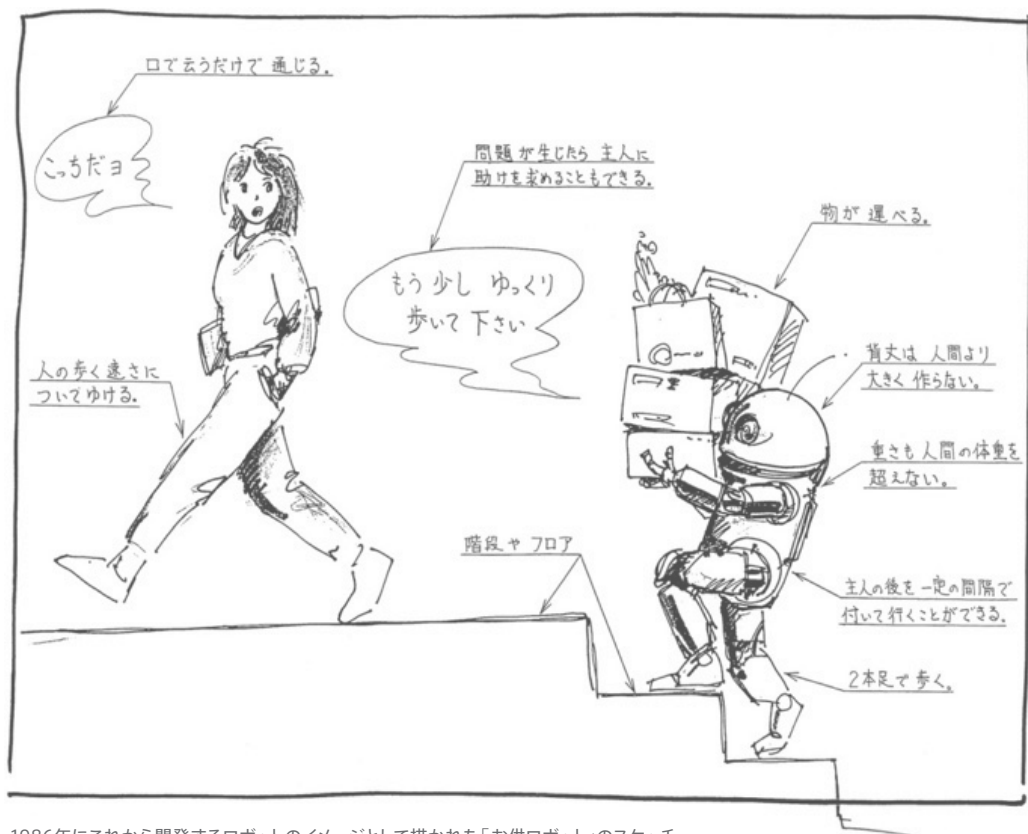 口で云うだけで 通じる。
こっちだヨ
問題が生じたら 主人に
助けを求めることもできる。
物が 運べる。
もう 少し ゆっくり
歩いて 下さい
背丈は 人間より
大きく 作らない。
人の歩く速さに
ついてゆける。
重さも 人間の体重を
超えない。
階段や フロア
主人の後を 一定の間隔で
付いて行くことができる。
2本足で 歩く。
1986年にこれから開発するロボットのイメージとして描かれた「お供ロボット」のスケッチ